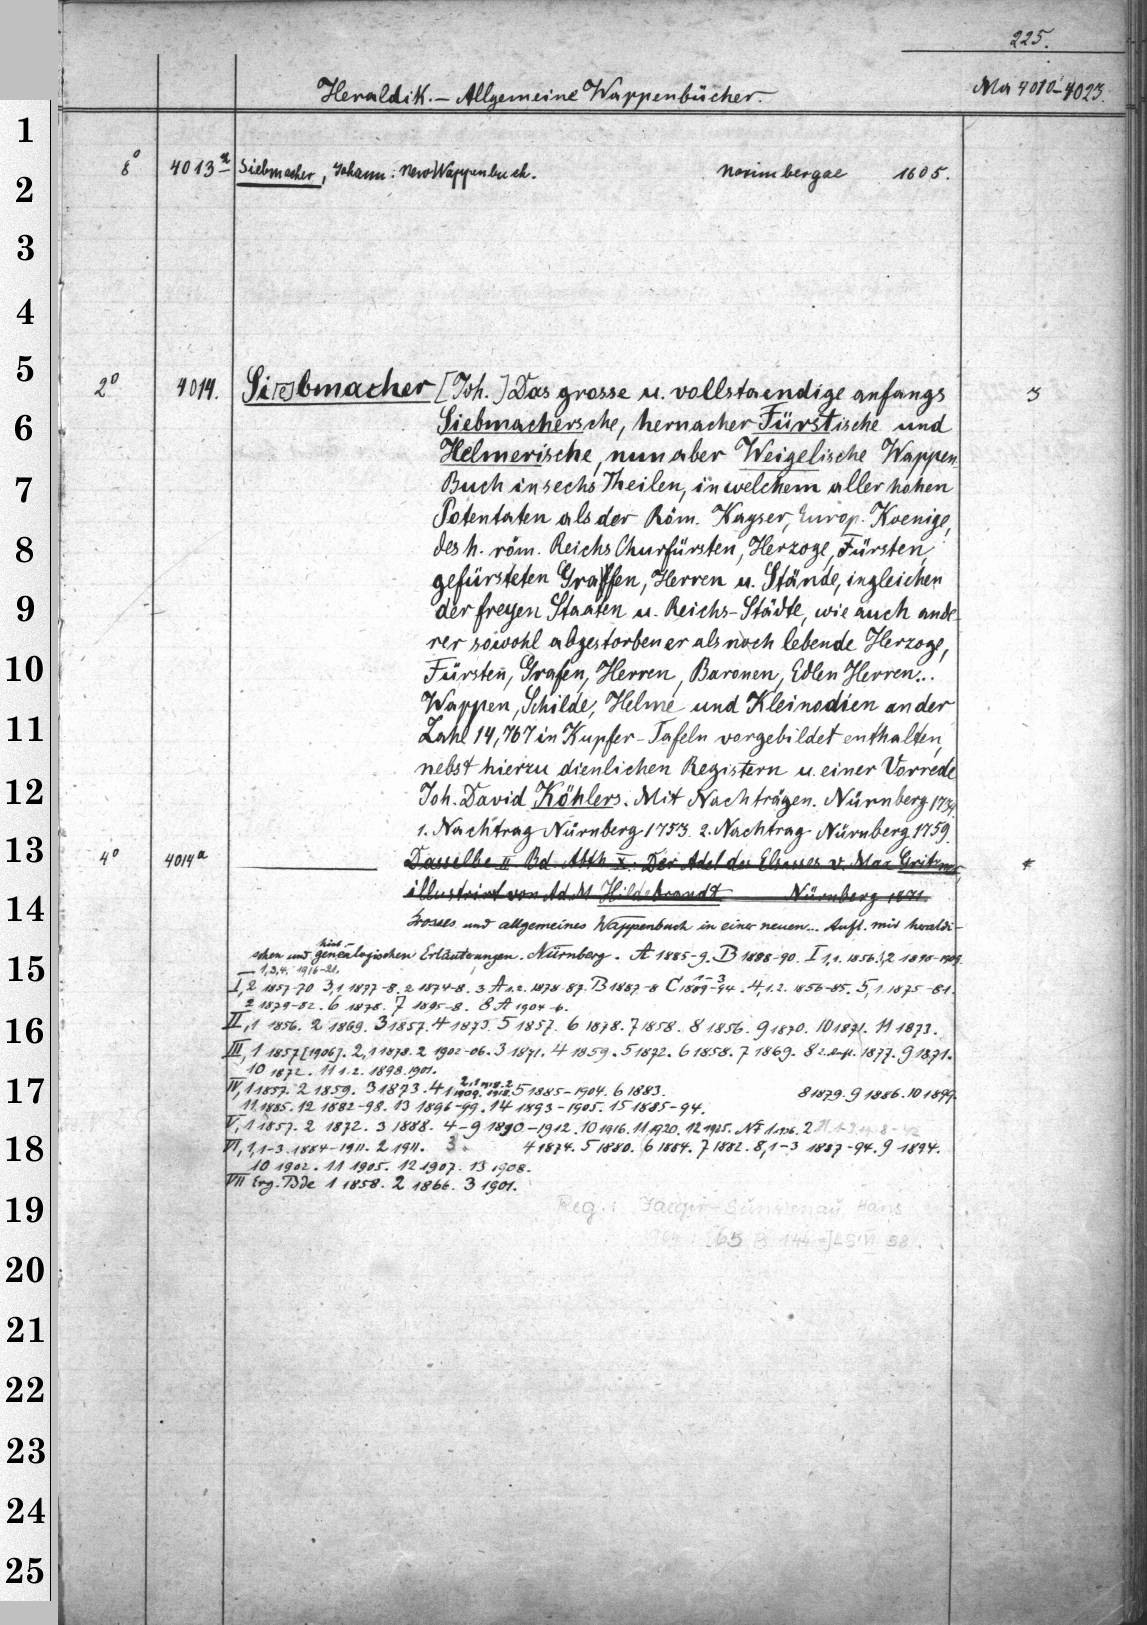 225.
Heraldik. – Allgemeine Wappenbücher.
Ma 4010–4023.
1
8° 4013a Siebmacher, Johann: New Wappenbuch. Norimbergae 1605.
2
3
4
5
2° 4014. Si[e]bmacher [Joh.] Das grosse u. vollstaendige anfangs 3
6
Siebmachersche, hernacher Fürstische und
Helmerische, nun aber Weigelische Wappen
7
Buch in sechs Theilen, in welchem aller hohen
Potentaten als der Röm. Kayser, Europ. Koenige,
8
des h. röm. Reichs Churfürsten, Herzoge, Fürsten,
gefürsteten Graffen, Herren u. Stände, ingleichen
9
der freyen Staaten u. Reichs-Städte, wie auch ande-
rer sowohl abgestorbener als noch lebende Herzoge,
10
Fürsten, Grafen, Herren, Baronen, Edlen Herren...
Wappen, Schilde, Helme und Kleinodien an der
11
Zahl 14,767 in Kupfer-Tafeln vorgebildet enthalten,
nebst hierzu dienlichen Registern u. einer Vorrede
12
Joh. David Köhlers. Mit Nachträgen. Nürnberg 1734.
1. Nachtrag Nürnberg 1753. 2. Nachtrag Nürnberg 1759.
13
4° 4014a Dasselbe II Bd. Abth X. Der Adel des Elsasses v. Max Gritzner,
illustrirt von Ad. M Hildebrandt Nürnberg 1871.
14
Grosses und allgemeines Wappenbuch in einer neuen... Aufl. mit heraldi-
schen und hist.-genealogischen Erläuterungen. Nürnberg. A 1885-9. B 1888-90. I 1,1. 1856. 1,2 1890-1909.
15
1,3,4. 1916-21.
I, 2 1857-70 3,1 1877-8. 2 1874-8. 3 A 1.2. 1878-87. B 1887-8 C 1-3 1889-94. 4,1.2. 1856-85. 5,1. 1875-81.
2 1879-82. 6 1878. 7 1895-8. 8 A 1904-6.
16
II, 1 1856. 2 1869. 3 1857. 4 1873. 5 1857. 6 1878. 7 1858. 8 1856. 9 1870. 10 1871. 11 1873.
III, 1 1857 [1906]. 2,1 1878. 2 1902-06. 3 1871. 4 1859. 5 1872. 6 1858. 7 1869. 8 2. Aufl. 1877. 9 1871.
10 1872. 11 1.2. 1898.1901.
17
IV, 1 1857. 2 1859. 3 1873. 4 5 1885-1904. 6 1883. 8 1879. 9 1886. 10 1899.
11 1885. 12 1882-98. 13 1896-99. 14 1893-1905. 15 1885-94.
V, 1 1857. 2 1872. 3 1888. 4-9 1890-1912. 10 1916. 11 1920. 12 1925.
18
VI, 1,1-3. 1884-1911. 2 1911. 3. 4 1874. 5 1880. 6 1884. 7 1882. 8,1-3 1887-94. 9 1894.
10 1902. 11 1905. 12 1907. 13 1908.
VII Erg. Bde 1 1858. 2 1866. 3 1901.
19
Reg.: Jaeger-Sunstenau, Hans
20
21
22
23
24
25